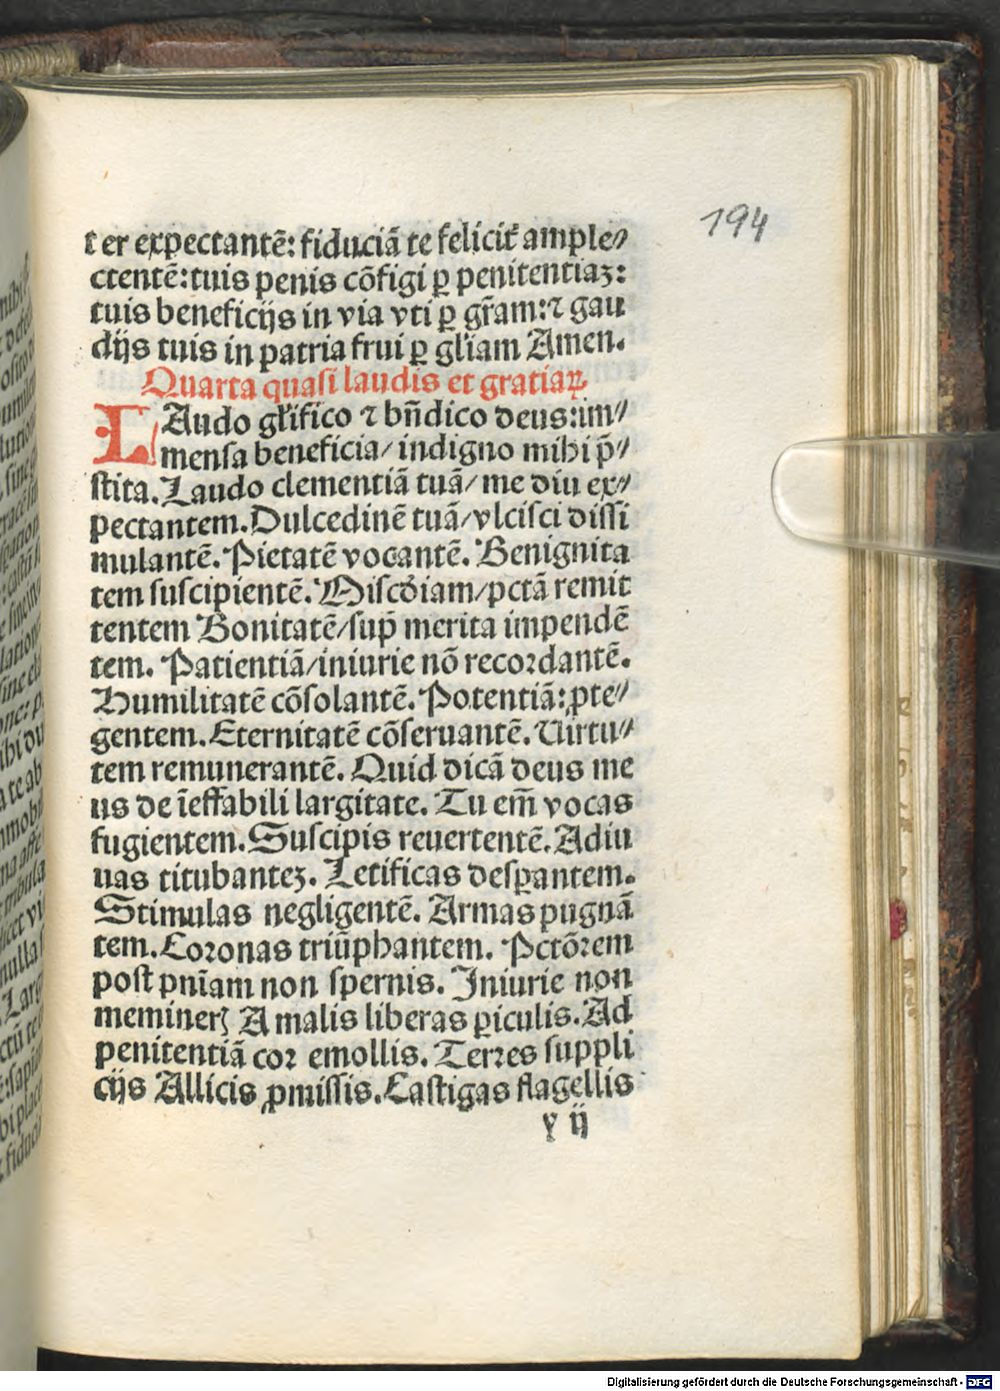 194
t er expectantē: fiduciā te felicit̄ ample⸗
ctentē: tuis penis cōfigi ꝑ penitentiaꝫ:
tuis beneficijs in via vti ꝑ gr̄am: ⁊ gau
dijs tuis in patria frui ꝑ gl̄iam Amen.
Quarta quasi laudis et gratiaꝝ.
LAudo gl̄ifico ⁊ bn̄dico deus: im⸗
mensa beneficia/ indigno mihi p̄⸗
stita. Laudo clementiā tuā/ me diu ex⸗
pectantem. Dulcedinē tuā/ vlcisci dissi
mulantē. Pietatē vocantē. Benignita
tem suscipientē. Misc̄diam/ pctā remit
tentem Bonitatē/ sup̄ merita impendē
tem. Patientiā/ iniurie nō recordantē.
Humilitatē cōsolantē. Potentiā: ꝓte⸗
gentem. Eternitatē cōseruantē. Uirtu⸗
tem remunerantē. Quid dicā deus me
us de īeffabili largitate. Tu em̄ vocas
fugientem. Suscipis reuertentē. Adiu
uas titubanteꝫ. Letificas desꝑantem.
Stimulas negligentē. Armas pugnā
tem. Coronas triūphantem. Pctōrem
post pn̄iam non spernis. Iniurie non
memineꝝ A malis liberas ꝑiculis. Ad
penitentiā cor emollis. Terres suppli
cijs Allicis ꝓmissis. Castigas flagellis
y ij
Digitalisierung gefördert durch die Deutsche Forschungsgemeinschaft - DFG